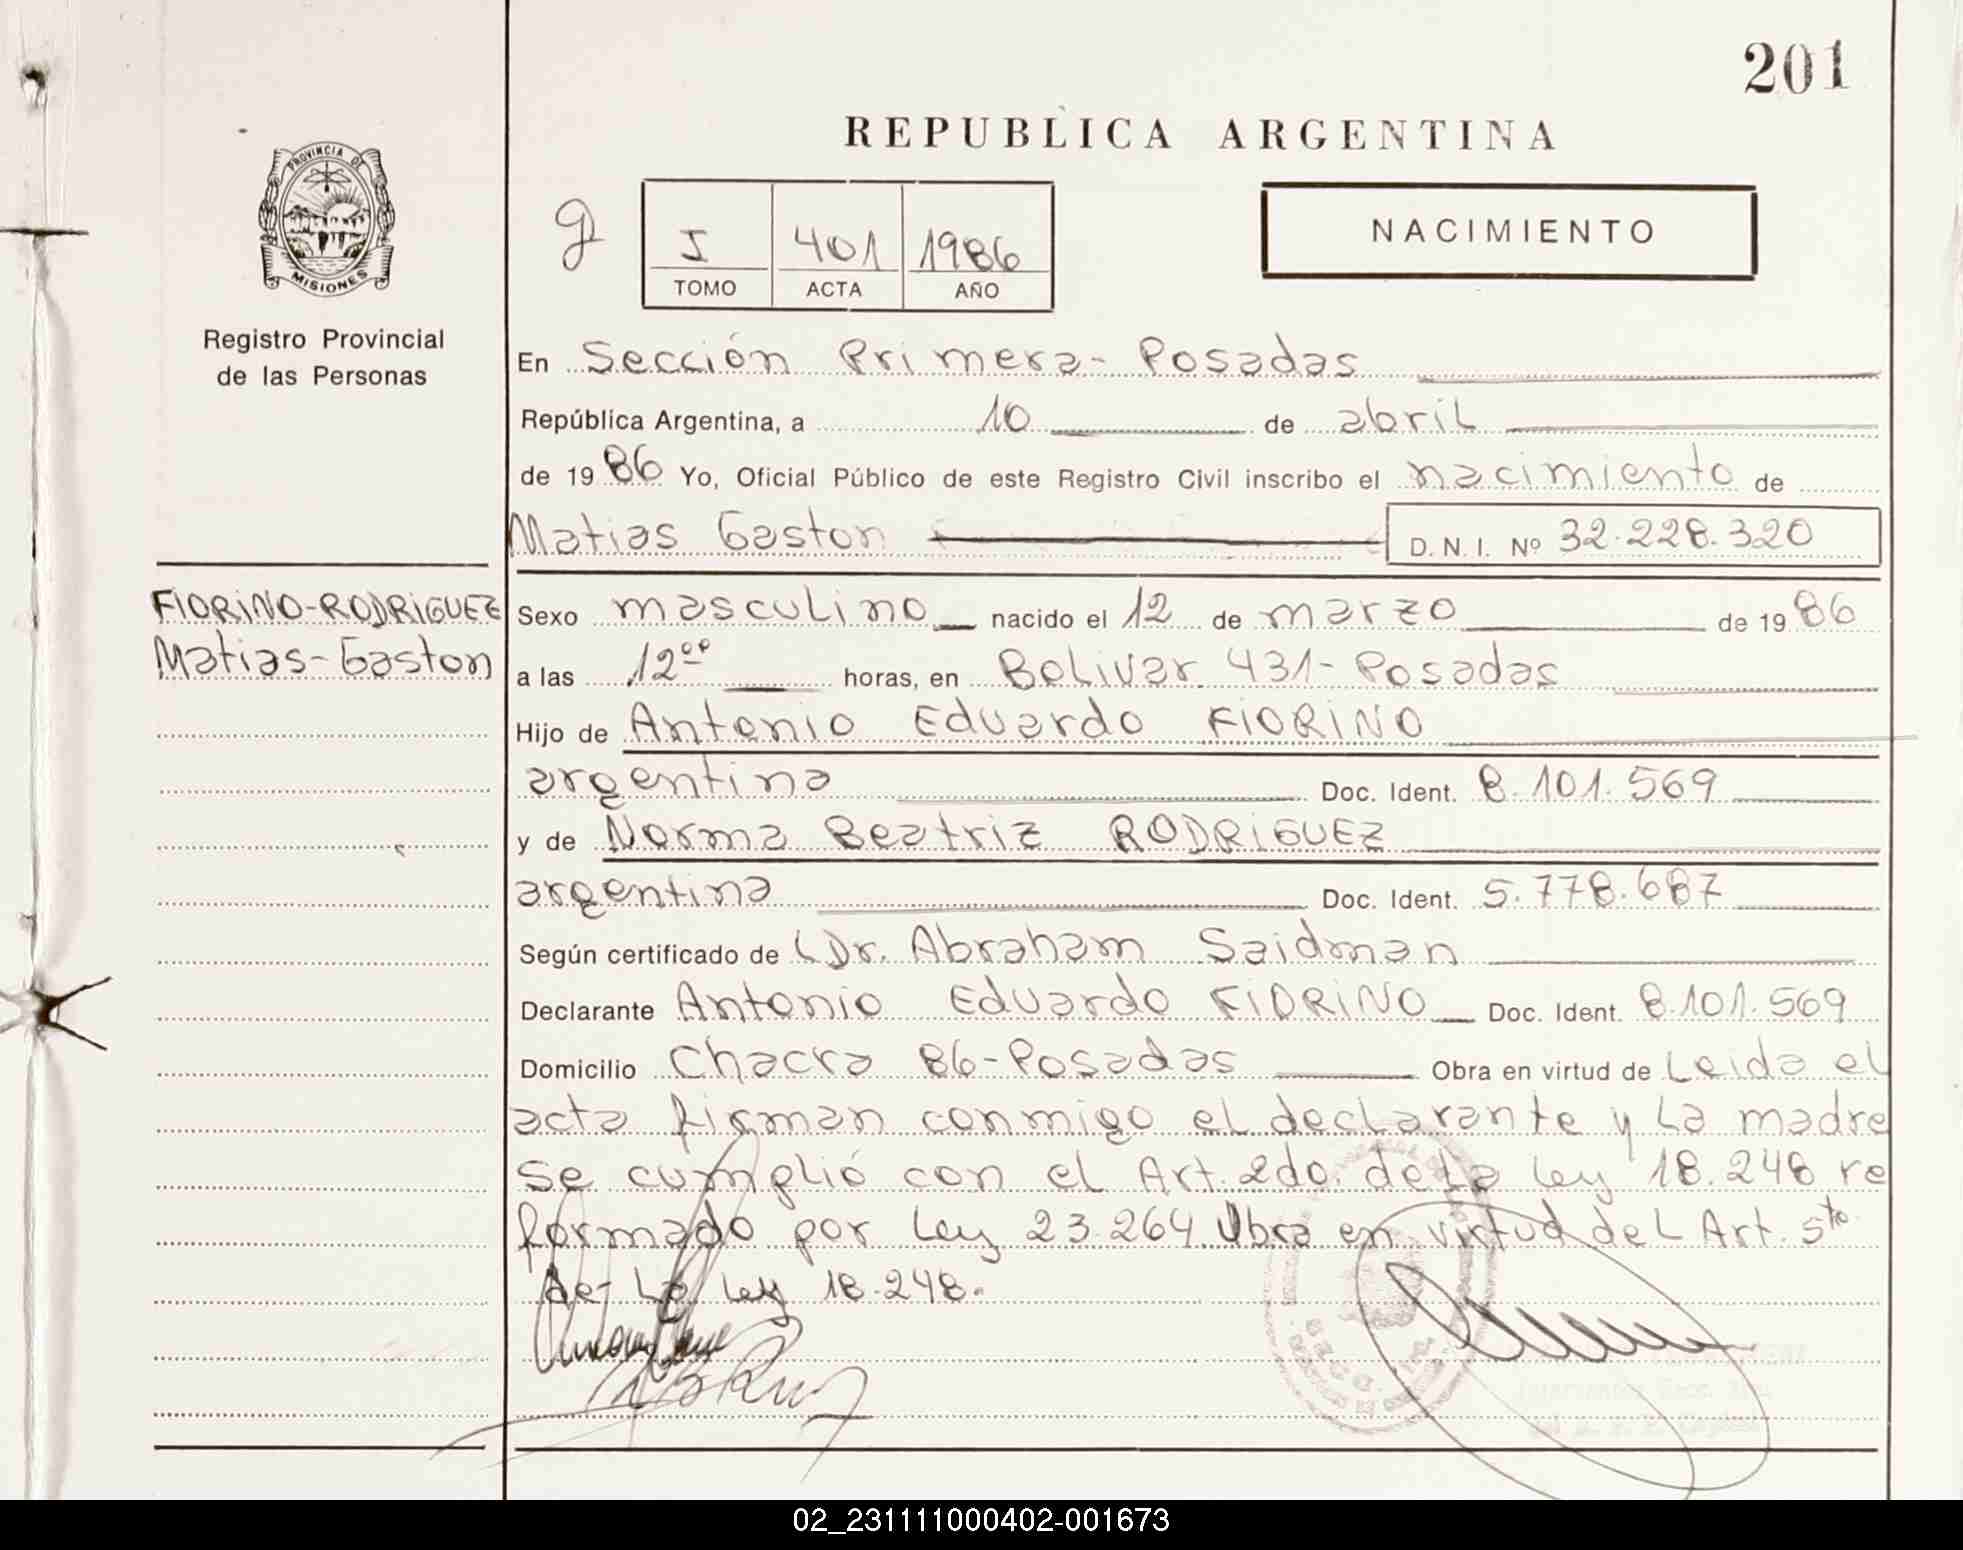 201
REPUBLICA ARGENTINA
PROVINCIA DE
MISIONES
Registro Provincial
de las Personas
g
I 401 1986
TOMO ACTA AÑO
NACIMIENTO
En Sección Primera- Posadas
República Argentina, a 10 de abril
de 1986 Yo, Oficial Público de este Registro Civil inscribo el nacimiento de
Matias Gaston D. N. I. Nº 32.228.320
FIORINO-RODRIGUEZ
Matias-Gaston
Sexo masculino nacido el 12 de marzo de 1986
a las 12°° horas, en Bolivar 431- Posadas
Hijo de Antonio Eduardo FIORINO
argentina Doc. Ident. 8.101.569
y de Norma Beatriz RODRIGUEZ
argentina Doc. Ident. 5.778.687
Según certificado de Dr. Abraham Saidman
Declarante Antonio Eduardo FIORINO Doc. Ident. 8.101.569
Domicilio Chacra 86-Posadas Obra en virtud de Leida el
acta firman conmigo el declarante y La madre
se cumplió con el Art. 2do. de La Ley 18.248 re
formado por Ley 23.264 Obra en virtud del Art. 5to
de La Ley 18.248.
02_231111000402-001673